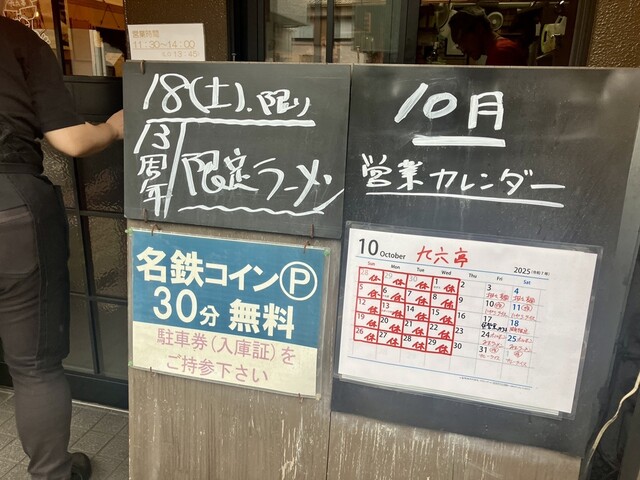 営業時間
11:30~14:00
18(土).限り
13周年
限定ラーメン
10月
営業カレンダー
名鉄コインⓅ
30分 無料
駐車券(入庫証)を
ご持参下さい
10 October 九六亭 2025(令和7年)
Sun Mon Tue Wed Thu Fri Sat
28 休 29 休 30 休 1 休 2 3 4
5 休 6 休 7 休 8 休 9 10 11
12 休 13 休 14 休 15 休 16 17 18
19 休 20 休 21 休 22 休 23 24 25
26 休 27 休 28 休 29 休 30 31